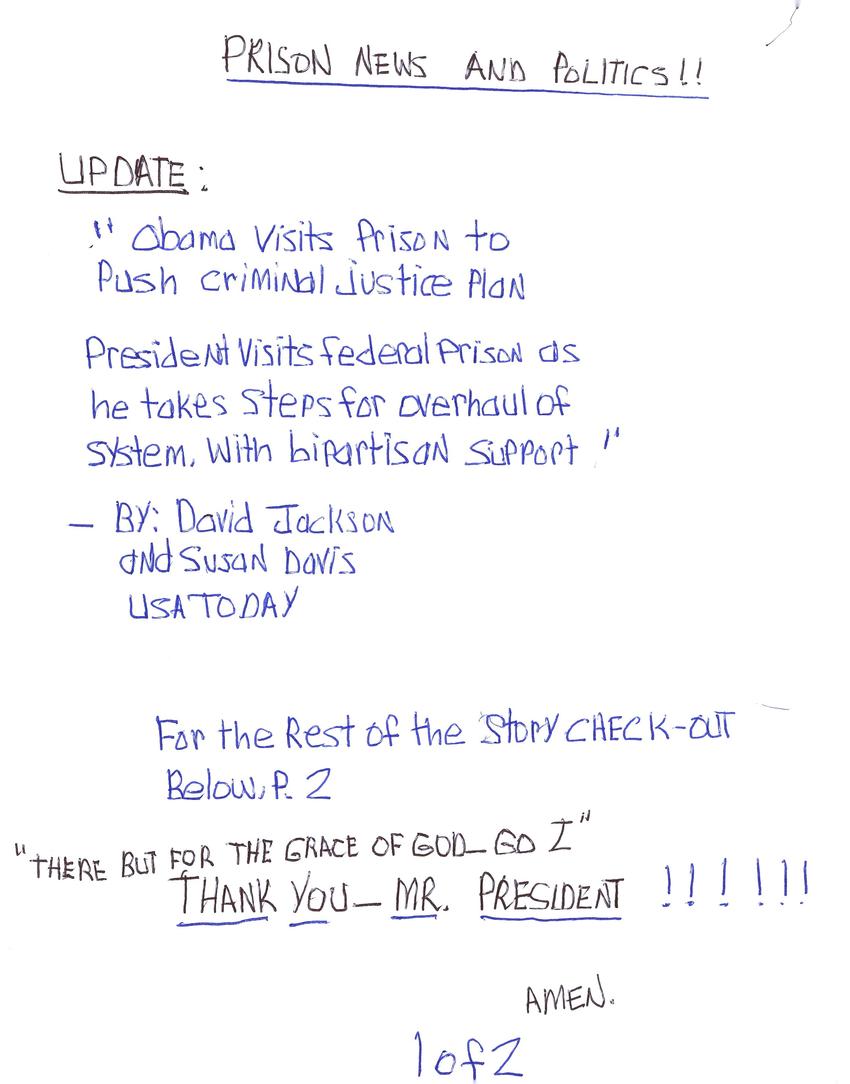 PRISON NEWS AND POLITICS!!
UPDATE:
" Obama Visits Prison to
Push criminal justice Plan
President Visits federal Prison as
he takes steps for overhaul of
system, With bipartisan support "
— BY: David Jackson
and Susan Davis
USA TODAY
For the Rest of the Story CHECK-OUT
Below, P. 2
"THERE BUT FOR THE GRACE OF GOD— GO I"
THANK YOU— MR. PRESIDENT !!!!!!
AMEN.
1 of 2